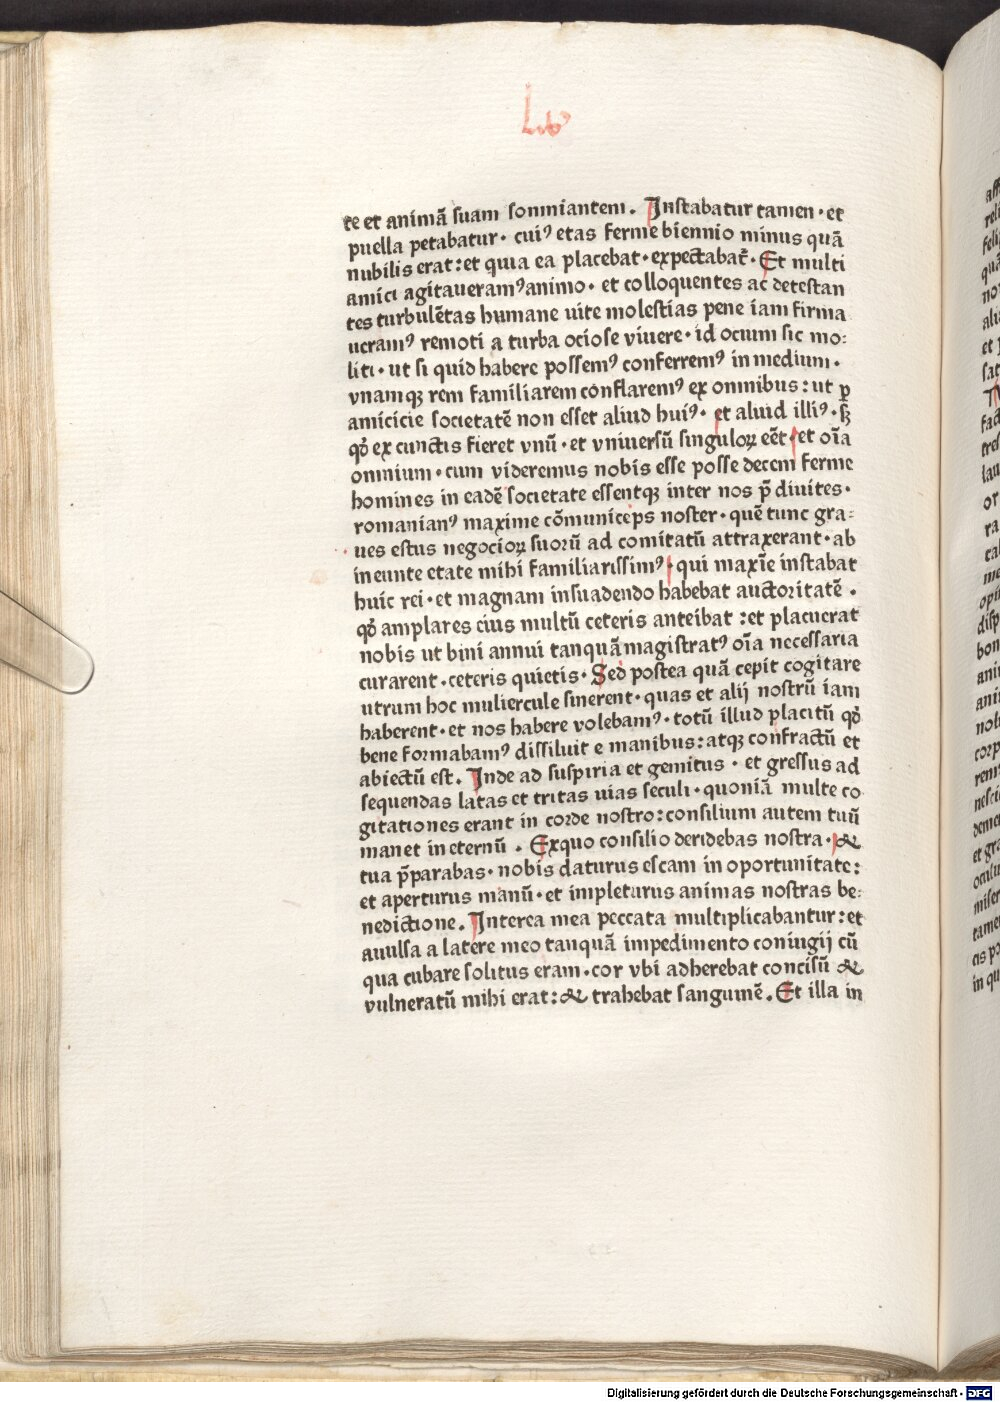 Lib
te et animā suam somniantem. Instabatur tamen · et
puella petabatur · cuiꝰ etas ferme biennio minus quā
nubilis erat : et quia ea placebat · expectabat᷑ · Et multi
amici agitaueramꝰ animo · et colloquentes ac detestan
tes turbulētas humane uite molestias pene iam firma
ueramꝰ remoti a turba ociose viuere · id ocium sic mo:
liti · ut si quid habere possemꝰ conferremꝰ in medium ·
vnamqꝫ rem familiarem conflaremꝰ ex omnibus : ut ꝑ
amicicie societatē non esset aliud huiꝰ · et aluid illiꝰ · sꝫ
qđ ex cunctis fieret vnū · et vniuersū singuloꝝ eēt · et oīa
omnium · cum videremus nobis esse posse decem ferme
homines in eadē societate essentqꝫ inter nos p̄ diuites ·
romanianꝰ maxime cōmuniceps noster · quē tunc gra:
ues estus negocioꝝ suorū ad comitatū attraxerant · ab
ineunte etate mihi familiarissimꝰ · qui maxīe instabat
huic rei · et magnam insuadendo habebat auctoritatē ·
qđ amplares eius multū ceteris anteibat : et placuerat
nobis ut bini annui tanquā magistratꝰ oīa necessaria
curarent · ceteris quietis · Sed postea quā cepit cogitare
utrum hoc muliercule sinerent · quas et alij nostrū iam
haberent · et nos habere volebamꝰ · totū illud placitū qđ
bene formabamꝰ dissiluit e manibus : atqꝫ confractū et
abiectū est. Inde ad suspiria et gemitus · et gressus ad
sequendas latas et tritas uias seculi · quoniā multe co
gitationes erant in corde nostro : consilium autem tuū
manet in eternū . Exquo consilio deridebas nostra · &
tua p̄parabas · nobis daturus escam in oportunitate :
et aperturus manū · et impleturus animas nostras be:
nedictione. Interea mea peccata multiplicabantur : et
auulsa a latere meo tanquā impedimento coniugij cū
qua cubare solitus eram · cor vbi adherebat concisū &
vulneratū mihi erat : & trahebat sanguinē . Et illa in
Digitalisierung gefördert durch die Deutsche Forschungsgemeinschaft - DFG